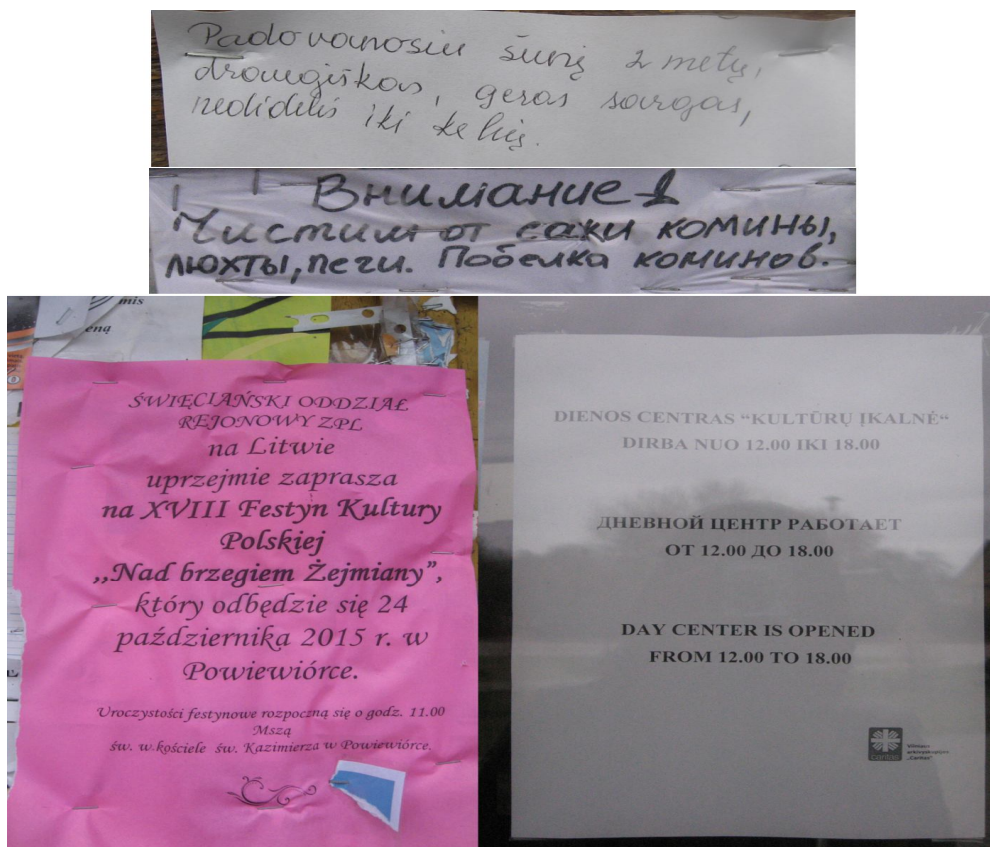 Padovanosiu šunį 2 metų,
draugiškas, geras sargas,
nedidelis iki kelių.
Внимание!
Чистим от сажи комины,
люхты, печи. Побелка коминов.
mis
eną
ŚWIĘCIAŃSKI ODDZIAŁ
REJONOWY ZPL
na Litwie
uprzejmie zaprasza
na XVIII Festyn Kultury
Polskiej
,,Nad brzegiem Żejmiany”,
który odbędzie się 24
października 2015 r. w
Powiewiórce.
Uroczystości festynowe rozpoczną się o godz. 11.00
Mszą
św. w kościele św. Kazimierza w Powiewiórce.
DIENOS CENTRAS “KULTŪRŲ ĮKALNĖ“
DIRBA NUO 12.00 IKI 18.00
ДНЕВНОЙ ЦЕНТР РАБОТАЕТ
ОТ 12.00 ДО 18.00
DAY CENTER IS OPENED
FROM 12.00 TO 18.00
Caritas
Vilniaus
arkivyskupijos
„Caritas“